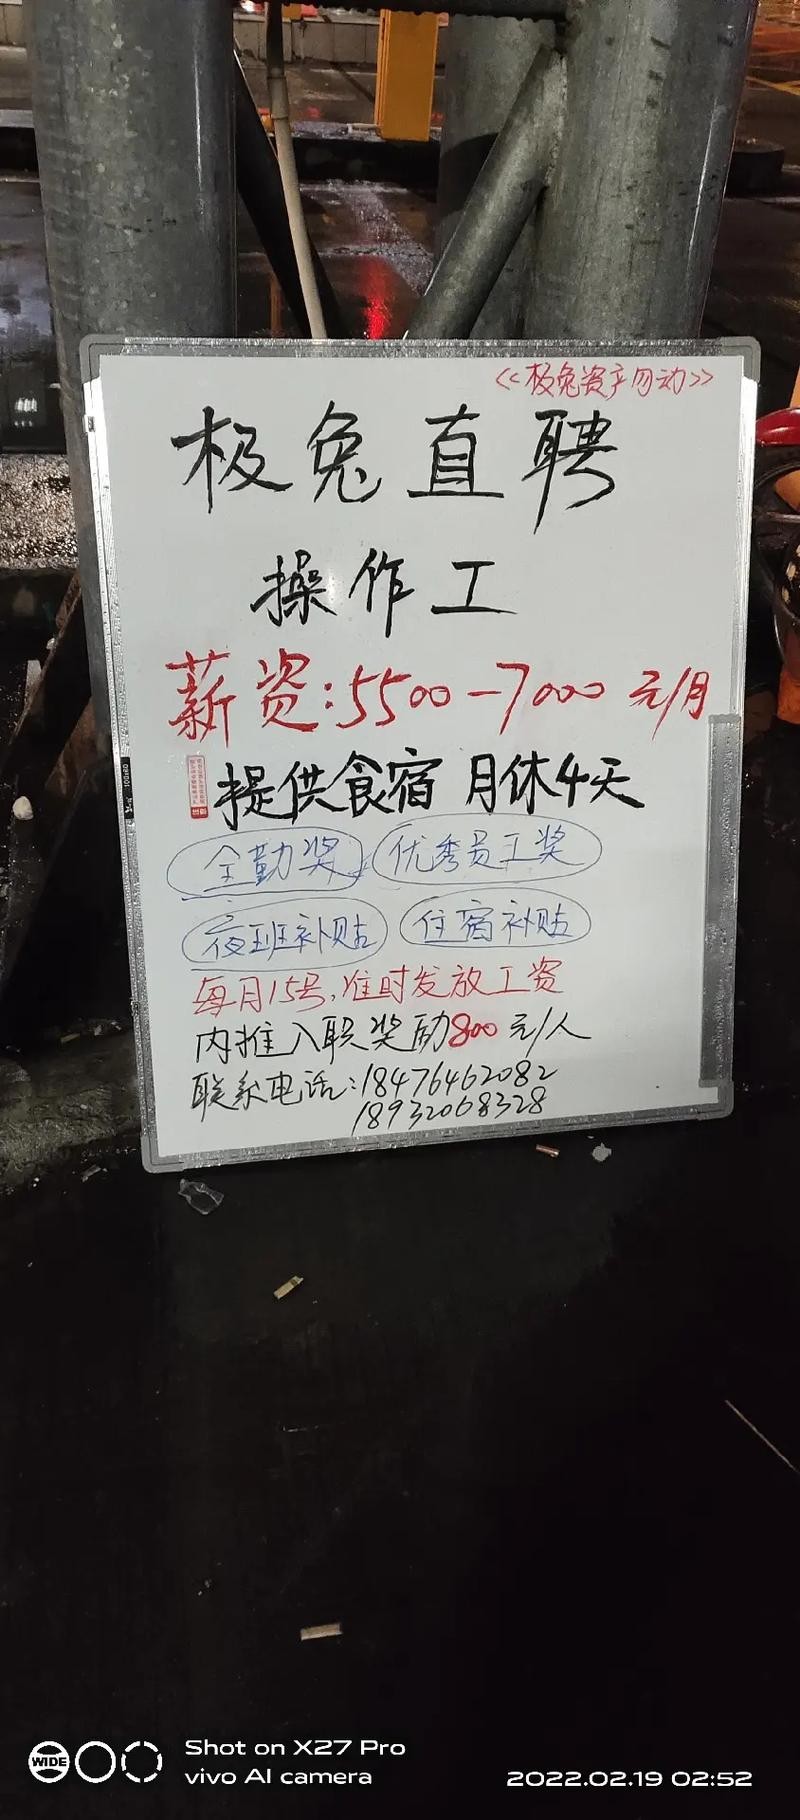 <<极兔资产勿动>>
极兔直聘
操作工
薪资:5500-7000元/月
提供食宿 月休4天
全勤奖 优秀员工奖
夜班补贴 住宿补贴
每月15号,准时发放工资
内推入职奖励800元/人
联系电话:18476462082
18932068328
WIDE
Shot on X27 Pro
vivo AI camera
2022.02.19 02:52